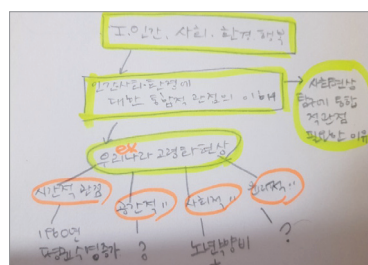 I. 인간, 사회, 환경, 행복
인간사회환경에
대한 통합적 관점의 이해
사회현상
탐구에 통합
적관점
필요한 이유
ex
우리나라 고령화현상
시간적 관점
공간적 "
사회적 "
윤리적 "
1960년
?
노년부양비
?